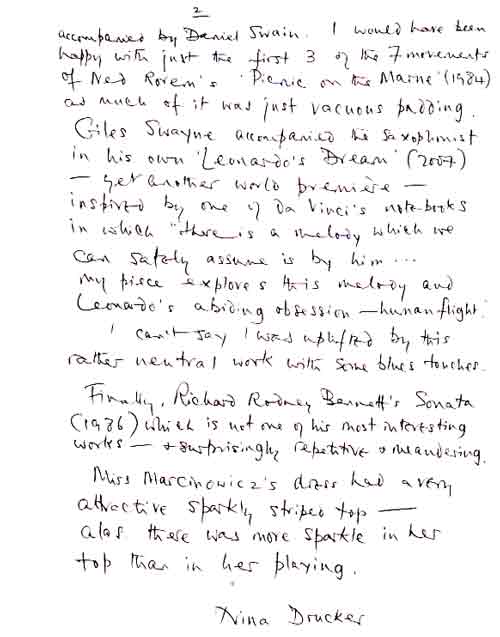 2
accompanied by Daniel Swain. I would have been
happy with just the first 3 of the 7 movements
of Ned Rorem's 'Picnic on the Marne' (1984)
as much of it was just vacuous padding.
Giles Swayne accompanied the saxophonist
in his own 'Leonardo's Dream' (2007)
— yet another world première —
inspired by one of da Vinci's notebooks
in which "there is a melody which we
can safely assume is by him ...
my piece explores this melody and
Leonardo's abiding obsession — human flight."
I can't say I was uplifted by this
rather neutral work with some blues touches.
Finally, Richard Rodney Bennett's Sonata
(1986) which is not one of his most interesting
works — & surprisingly repetitive & meandering.
Miss Marcinowicz's dress had a very
attractive sparkly striped top —
alas there was more sparkle in her
top than in her playing.
Nina Drucker